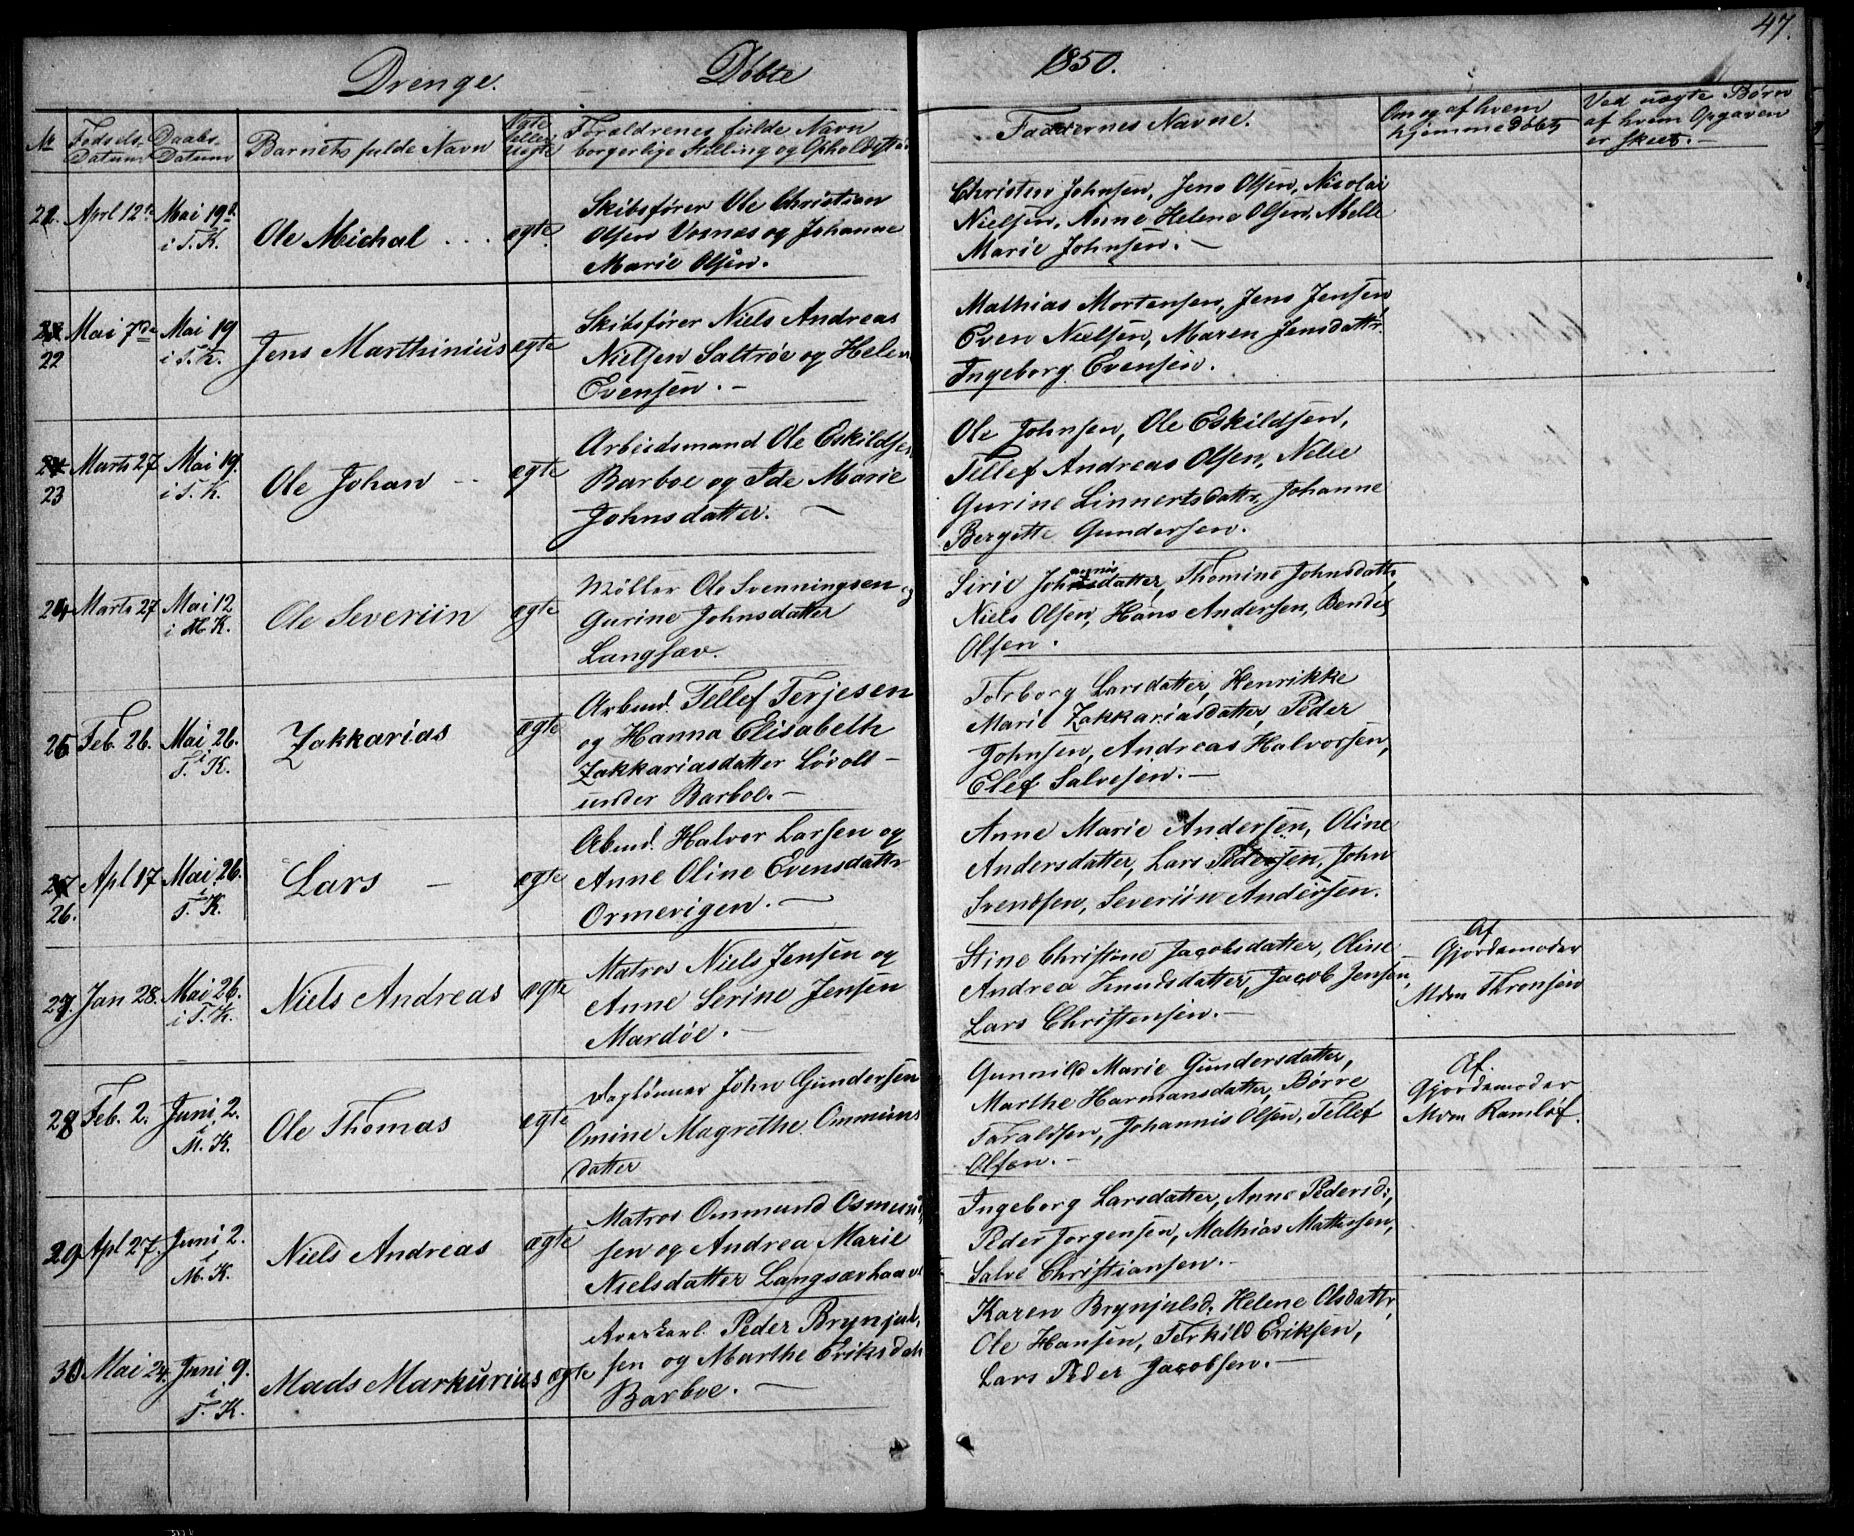 47.
Drenge. Døbte 1850.
No
Fødsels Datum
Daabs Datum
Barnets fulde Navn
Ægte eller uægte
Forældrenes fulde Navn
borgerlige Stilling og Opholdssted
Faddernes Navne.
Om og af hvem
hjemmedøbt
Ved uægte Børn
af hvem Opgaven
er skeet. –
21. Aprl 12te Mai 19de i T. K. Ole Michal . . . ægte
Skibsfører Ole Christian
Olsen Vosnæs og Johanne
Marie Olsen.
Christen Johnsen, Jens Olsen, Nicolai
Nielsen, Anne Helene Olsen, Abelle
Marie Johnsen. –
22 Mai 7de Mai 19 i T. K. Jens Marthinius ægte
Skibsfører Niels Andreas
Nielsen Saltrøe og Helene
Evensen. –
Mathias Mortensen, Jens Jensen
Even Nielsen, Maren Jensdattr.
Ingeborg Evensen.
23 Marts 27 Mai 19. i T. K. Ole Johan – – ægte
Arbeidsmand Ole Eskildsen
Barboe og Ide Marie
Johnsdatter. –
Ole Johnsen, Ole Eskildsen,
Tellef Andreas Olsen, Nelle
Gurine Linnertsdattr, Johanne
Bergette Gundersen.
24 Marts 27 Mai 12 i M. K. Ole Severiin ægte
Møller Ole Svenningsen og
Gurine Johnsdatter
Langsæv.
Sirie Johannisdatter, Thomine Johnsdattr,
Niels Olsen, Hans Andersen, Bendes
Olsen.
25 Feb. 26. Mai 26. i T. K. Zakkarias ægte
Arbmd. Tellef Terjesen
og Hanna Elisabeth
Zakkariasdatter Løvolt –
under Barboe. –
Torborg Larsdatter, Henrikke
Marie Zakkariasdatter, Peder
Johnsen, Andreas Halvorsen,
Elef Salvesen. –
26. Apl 17 Mai 26. i T. K. Lars – ægte
Abmd. Halvor Larsen og
Anne Oline Evensdattr
Ormevigen. –
Anne Marie Andersen, Oline
Andersdatter, Lars Pedersen, John
Svendsen, Severiin Andersen.
27. Jan 28. Mai 26. i T. K. Niels Andreas ægte
Matros Niels Jensen og
Anne Serine Jensen
Mardøe. –
Stine Christine Jacobsdatter, Oline
Andrea Knudsdatter, Jacob Jensen,
Lars Christensen. –
Af
Gjordemoder
Mdm Thronsen
28 Feb. 2. Juni 2. i M. K. Ole Thomas ægte
Daglønner John Gundersen
Omine Magrethe Ommunds
datter
Gunnild Marie Gundersdatter,
Marthe Harmansdatter, Børre
Taraldsen, Johannis Olsen, Tellef
Olsen. –
Af.
Gjordemoder
Mdm Ramløf.
29 Apl 27. Juni 2. i M. K. Niels Andreas ægte
Matros Ommund Osmund
sen og Andrea Marie
Nielsdatter Langsævhaavet
Ingeborg Larsdatter, Anne Pedersd:,
Peder Jørgensen, Mathias Mathisen,
Salve Christiansen. –
30 Mai 24. Juni 9. i T. K. Mads Markurius ægte
Peder Brynjul-
sen og Marthe Eriksdatr
Barboe. –
Karen Brynjulsd. Helene Olsdattr,
Ole Hansen, Terkild Eriksen,
Lars Peder Jacobsen. –